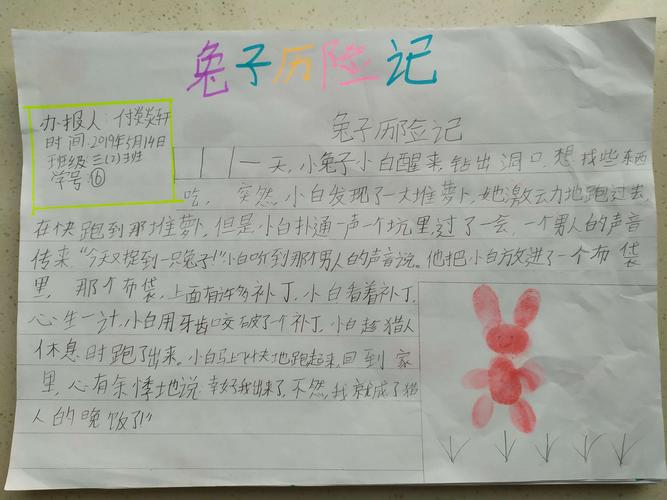 兔子历险记
办报人:付焱轩
时间:2019年5月14日
班级:三(2)班
学号:⑥
兔子历险记
一天,小兔子小白醒来,钻出洞口,想找些东西
吃,突然,小白发现了一大堆萝卜,她激动地跑过去,
在快跑到那堆萝卜,但是,小白扑通一声个坑里,过了一会,一个男人的声音
传来,“今天又捉到一只兔子!”小白听到那个男人的声音说。他把小白放进了一个布袋
里,那个布袋,上面有许多补丁,小白看着补丁,
心生一计,小白用牙齿咬破了个补丁,小白趁猎人
休息时跑了出来。小白马上飞快地跑起来,回到家
里,心有余悸地说:幸好我出来了,不然,我就成了猎
人的晚饭了!”